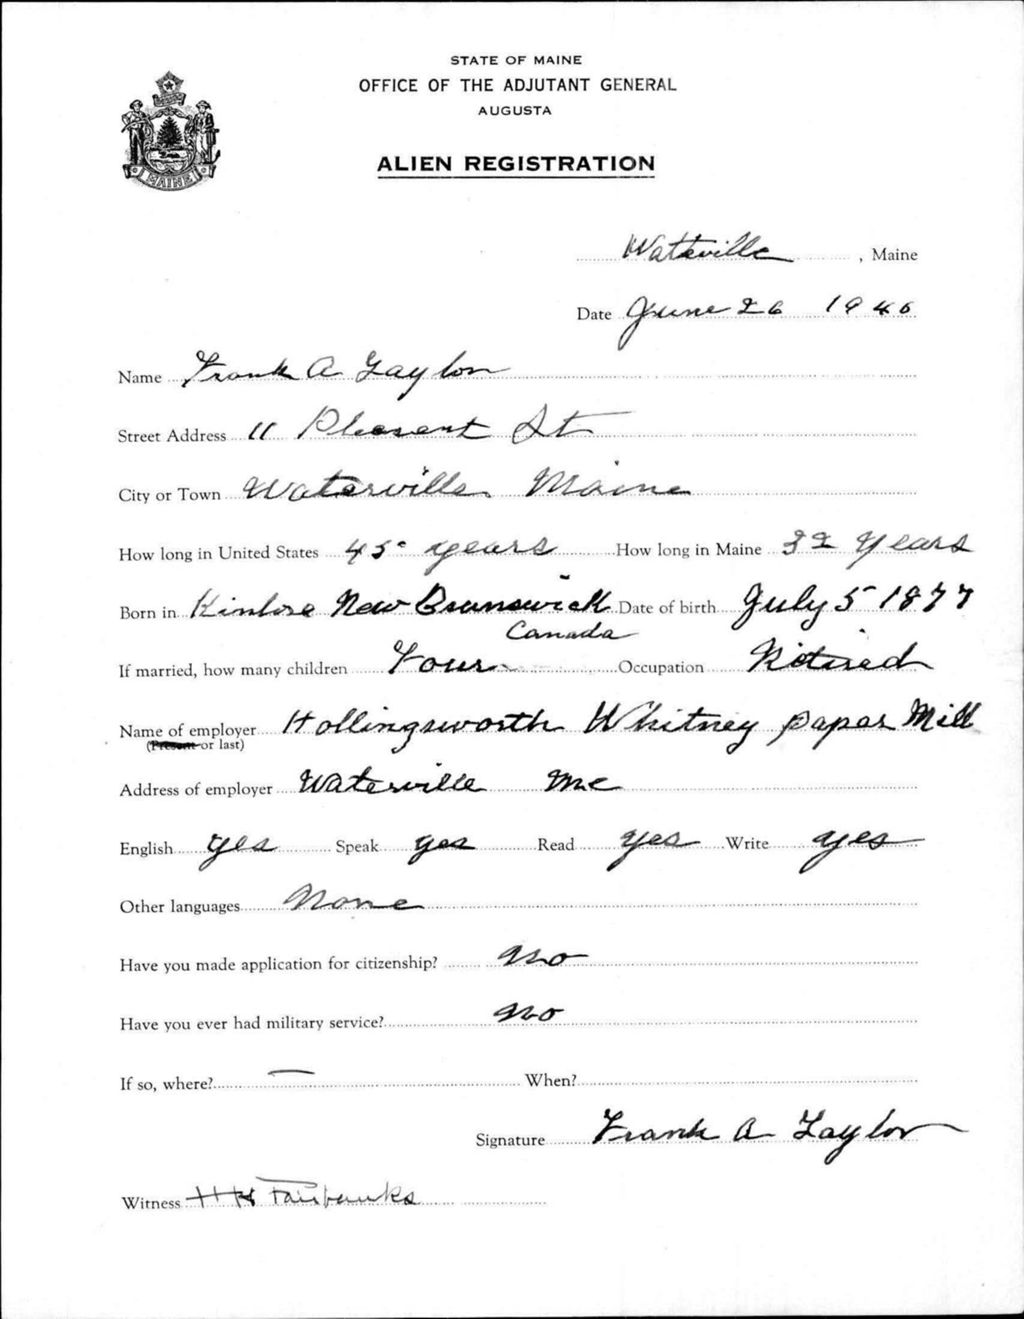 STATE OF MAINE
OFFICE OF THE ADJUTANT GENERAL
AUGUSTA
ALIEN REGISTRATION
MAINE
Waterville, Maine
Date June 26 1940
Name Frank A Taylor
Street Address 11 Pleasent St
City or Town Waterville Maine
How long in United States 45 years How long in Maine 32 Years
Born in New Brunswick Date of birth July 5 1877
Canada
If married, how many children Four Occupation Retired
Name of employer Hollingsworth Whitney paper Mill
(Present or last)
Address of employer Waterville Me
English yes Speak yes Read yes Write yes
Other languages None
Have you made application for citizenship? No
Have you ever had military service? No
If so, where? — When?
Signature Frank A Taylor
Witness H H Fairbanks